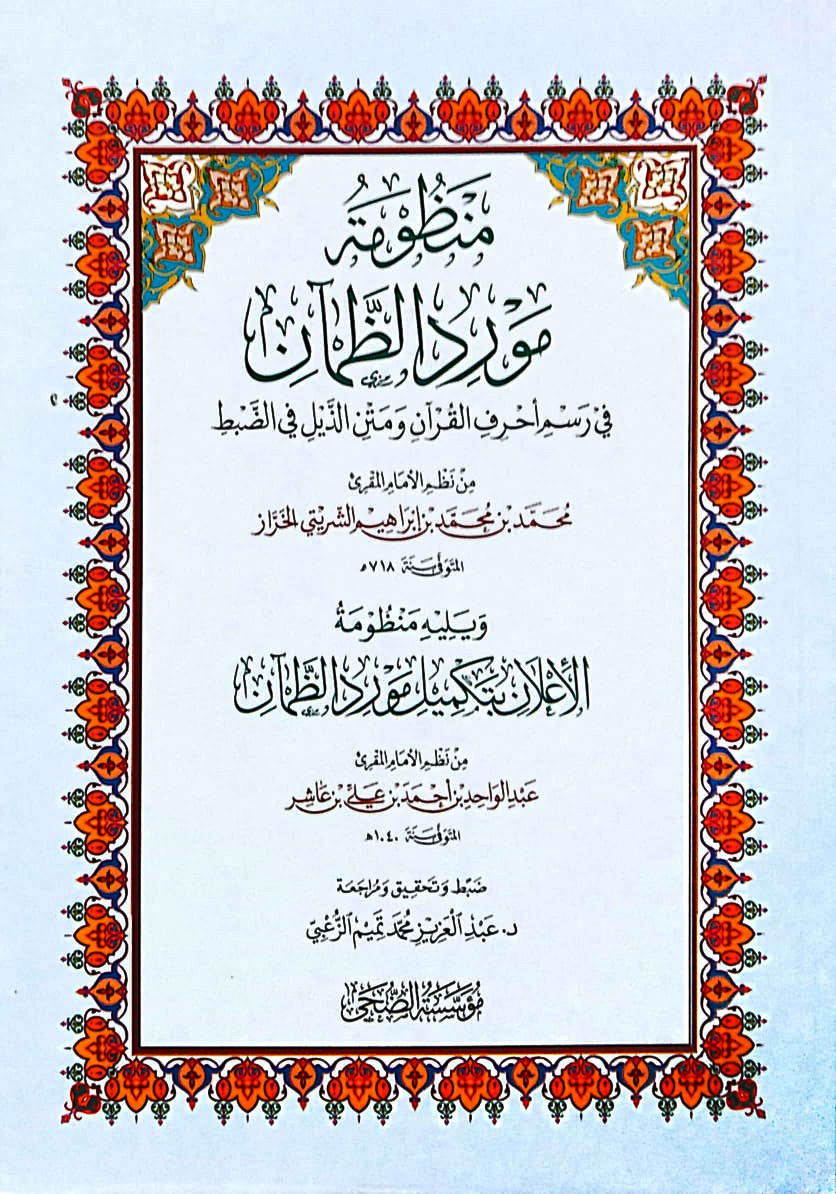 مَنْظُوْمَةُ
مَوْرِدِ الظَّمْآنِ
فِيْ رَسْمِ أَحْرِفِ القُرْآنِ وَمَتْنِ الذَّيْلِ فِي الضَّبْطِ
مِنْ نَظْمِ الإِمَامِ المُقْرِئ
مُحَمَّد بْن مُحَمَّد بْن إِبْرَاهِيْم الشَّرِيْشِيّ الخَرَّاز
المُتَوَفَّى سَنَةَ ٧١٨ه
وَيَلِيْهِ مَنْظُوْمَةُ
الإِعْلَانِ بِتَكْمِيْلِ مَوْرِدِ الظَّمْآنِ
مِنْ نَظْمِ الإِمَامِ المُقْرِئ
عَبْدِ الوَاحِدِ بْن أَحْمَد بْن عَلِيّ بْن عَاشِر
المُتَوَفَّى سَنَةَ ١٠٤٠ه
ضَبْط وَتَحْقِيق وَمُرَاجَعَة
د. عَبْدِ الْعَزِيْزِ مُحَمَّد تَمِيْم الزُّعْبِيّ
مُؤَسَّسَةُ الضُّحَى